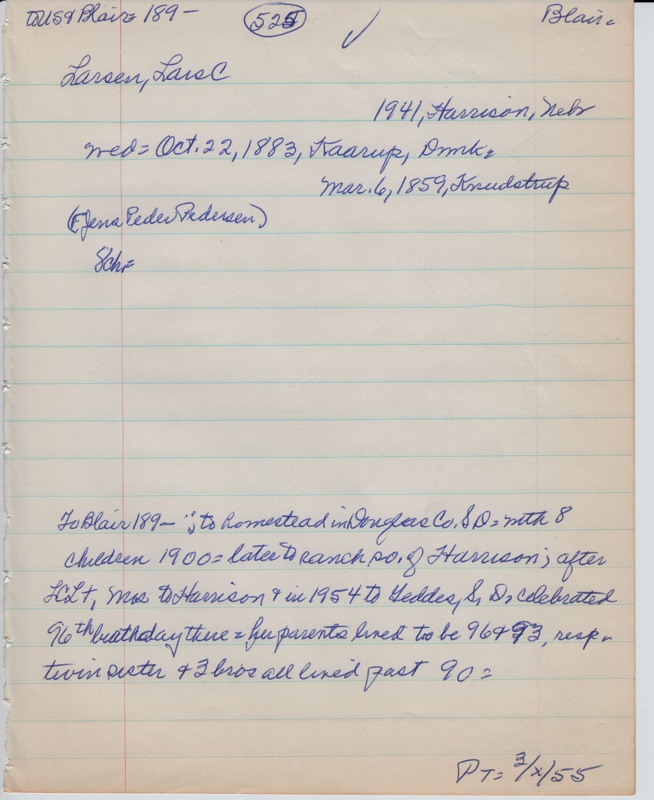 toUSA Blair= 189- 525 Blair=
Larsen, Lars C
1941, Harrison, Nebr
wed= Oct. 22, 1883, Kaarup, Dmk=
Mar. 6, 1859, Knudstrup
(F Jens Peder Pedersen)
8ch=
To Blair 189- ; to homestead in Douglas Co. S D= with 8
children 1900= later to ranch so. of Harrison; after
LCL+, Mrs to Harrison + in 1954 to Geddes, S, D, celebrated
96th birthday there= her parents lived to be 96 + 93, resp.
twin sister + 3 bros all lived past 90=
PT= 3/X/55